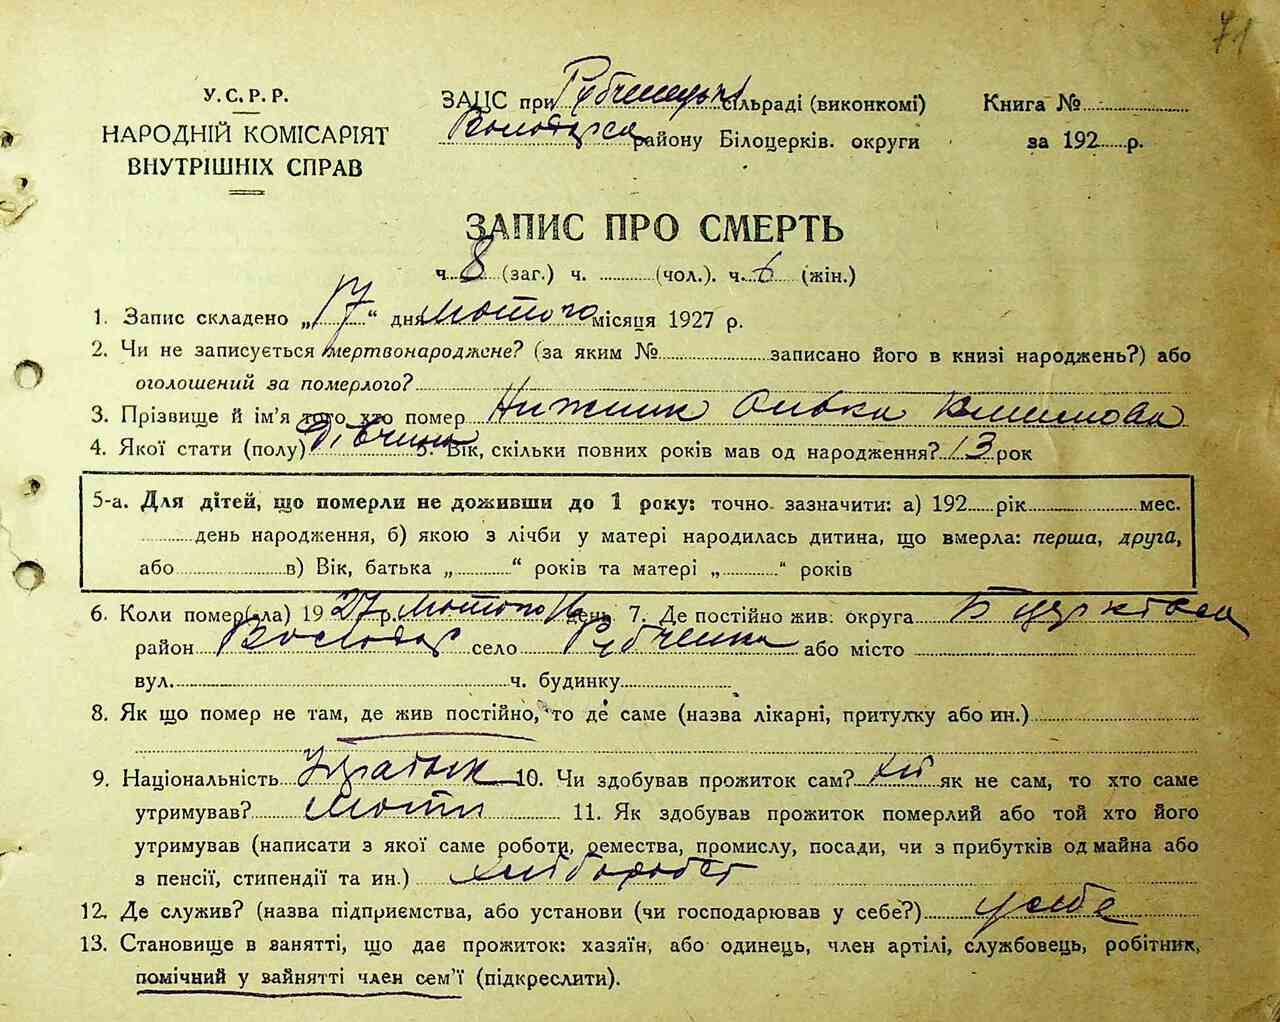 71
У.С.Р.Р.
НАРОДНІЙ КОМІСАРІЯТ
ВНУТРІШНІХ СПРАВ
ЗАЦС при Рубченській сільраді (виконкомі)
Володарськ району Білоцерків. округи
Книга №
за 192 р.
ЗАПИС ПРО СМЕРТЬ
ч. 8 (заг.) ч. (чол.). ч. 6 (жін.)
1. Запис складено „17“ дня лютого місяця 1927 р.
2. Чи не записується мертвонароджене? (за яким № записано його в книзі народжень?) або
оголошений за померлого?
3. Прізвище й ім'я того хто помер Нижник Олвка Климова
4. Якої стати (полу) Дівчина 5. Вік, скільки повних років мав од народження? 13 рок
5-а. Для дітей, що померли не доживши до 1 року: точно зазначити: а) 192 рік мес.
день народження, б) якою з лічби у матері народилась дитина, що вмерла: перша, друга,
або в) Вік, батька „ “ років та матері „ “ років
6. Коли помер(ла) 1927 р. лютого 16 день 7. Де постійно жив: округа Б Церківськ
район Володар село Рубченка або місто
вул. ч. будинку
8. Як що помер не там, де жив постійно, то де саме (назва лікарні, притулку або ин.)
9. Національність 10. Чи здобував прожиток сам? ні як не сам, то хто саме
утримував? мати 11. Як здобував прожиток померлий або той хто його
утримував (написати з якої саме роботи, ремества, промислу, посади, чи з прибутків од майна або
з пенсії, стипендії та ин.) хлібороб
12. Де служив? (назва підприємства, або установи (чи господарював у себе?) у себе
13. Становище в занятті, що дає прожиток: хазяїн, або одинець, член артілі, службовець, робітник,
помічний у зайнятті член сем'ї (підкреслити).